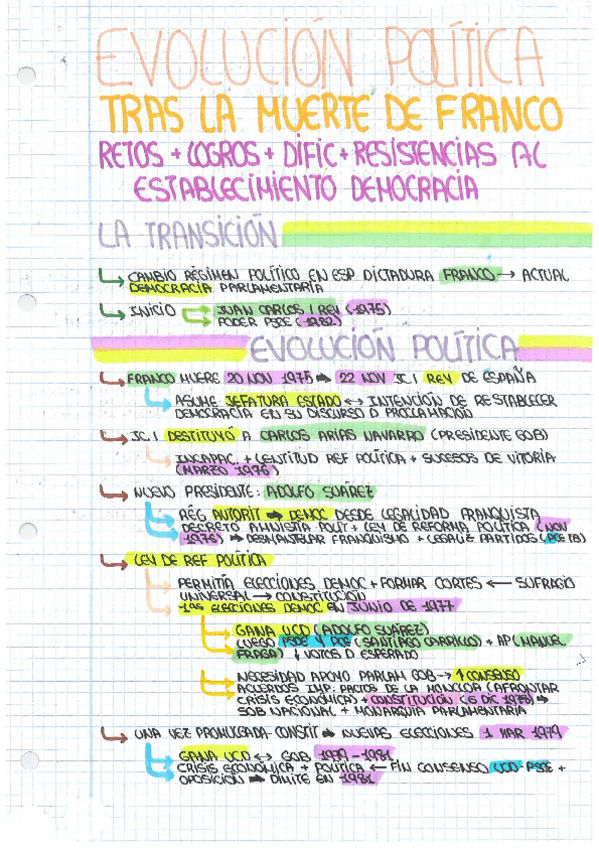 EVOLUCIÓN POLÍTICA
TRAS LA MUERTE DE FRANCO
RETOS + LOGROS + DIFIC + RESISTENCIAS AL
ESTABLECIMIENTO DEMOCRACIA
LA TRANSICIÓN
CAMBIO RÉGIMEN POLÍTICO EN ESP DICTADURA FRANCO → ACTUAL
DEMOCRACIA PARLAMENTARIA
INICIO JUAN CARLOS I REY (1975)
PODER PSOE (1982)
EVOLUCIÓN POLÍTICA
FRANCO MUERE 20 NOV 1975 → 22 NOV JC.I REY DE ESPAÑA
ASUME JEFATURA ESTADO ↔ INTENCIÓN DE RESTABLECER
DEMOCRACIA EN SU DISCURSO D PROCLAMACIÓN
JC.I DESTITUYÓ A CARLOS ARIAS NAVARRO (PRESIDENTE GOB)
INCAPAC. + LENTITUD REF POLÍTICA + SUCESOS DE VITORIA
(MARZO 1976)
NUEVO PRESIDENTE: ADOLFO SUÁREZ
RÉG AUTORIT → DEMOC DESDE LEGALIDAD FRANQUISTA
DECRETO AMNISTÍA POLÍT + LEY DE REFORMA POLÍTICA (NOV
1976) → DESMANTELAR FRANQUISMO + LEGALIZ PARTIDOS (PCE 78)
LEY DE REF POLÍTICA
PERMITÍA ELECCIONES DEMOC + FORMAR CORTES ← SUFRAGIO
UNIVERSAL → CONSTITUCIÓN
1as ELECCIONES DEMOC EN JUNIO DE 1977
GANA UCD (ADOLFO SUÁREZ)
LUEGO PSOE Y PCE (SANTIAGO CARRILLO) + AP (MANUEL
FRAGA) ↓ VOTOS D ESPERADO
NECESIDAD APOYO PARLAM GOB → 1 CONSENSO
ACUERDOS IMP: PACTOS DE LA MONCLOA (AFRONTAR
CRISIS ECONÓMICA) + CONSTITUCIÓN (6 DIC 1978) →
SOB NACIONAL + MONARQUÍA PARLAMENTARIA
UNA VEZ PROMULGADA CONSTIT → NUEVAS ELECCIONES 1 MAR 1979
GANA UCD ↔ GOB 1979-1981
CRISIS ECONÓMICA + POLÍTICA ← FIN CONSENSO UCD-PSOE +
OPOSICIÓN → DIMITE EN 1981